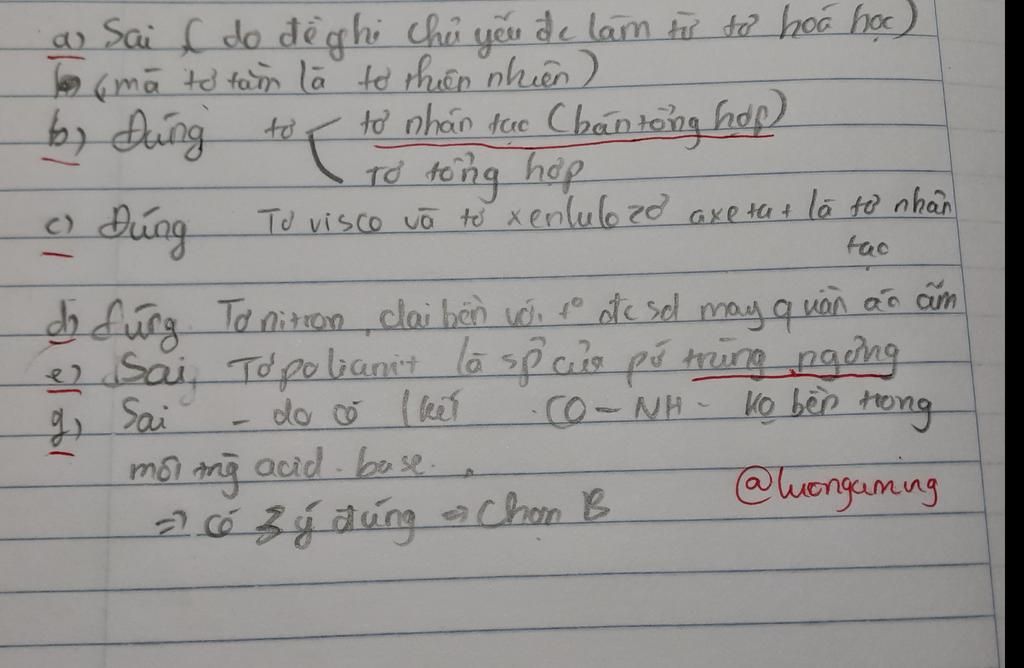 a) Sai ( do đề ghi chủ yếu đc làm từ tơ hoá học)
(mà tơ tằm là tơ thiên nhiên)
b) Đúng tơ tơ nhân tạo (bán tổng hợp)
Tơ tổng hợp
c) Đúng Tơ visco và tơ xenlulozơ axetat là tơ nhân
tạo
d) đúng. Tơ nitron, dai bền với t° đc sd may quần áo ấm
e) Sai, Tơ poliamit là sp của pứ trùng ngưng
g) Sai - do có lkết CO-NH- ko bền trong
môi trg acid. base.
=> có 3 ý đúng => Chọn B
@luongamung